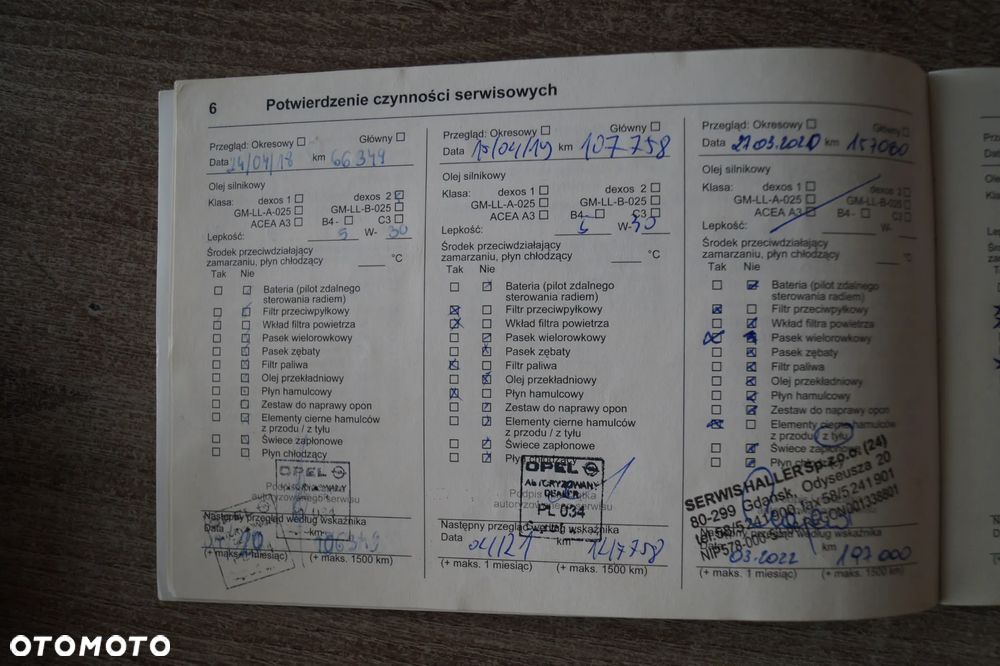 6 Potwierdzenie czynności serwisowych
Przegląd: Okresowy Główny
Data 24/04/18 km 66349
Olej silnikowy
Klasa: dexos 1 dexos 2
GM-LL-A-025 GM-LL-B-025
ACEA A3 B4- C3
Lepkość: 5 W- 30
Środek przeciwdziałający
zamarzaniu, płyn chłodzący °C
Tak Nie
Bateria (pilot zdalnego
sterowania radiem)
Filtr przeciwpyłkowy
Wkład filtra powietrza
Pasek wielorowkowy
Pasek zębaty
Filtr paliwa
Olej przekładniowy
Płyn hamulcowy
Zestaw do naprawy opon
Elementy cierne hamulców
z przodu / z tyłu
Świece zapłonowe
Płyn chłodzący
OPEL
Następny przegląd według wskaźnika
Data km
106349
(+ maks. 1 miesiąc) (+ maks. 1500 km)
Przegląd: Okresowy Główny
Data 15/04/19 km 107758
Olej silnikowy
Klasa: dexos 1 dexos 2
GM-LL-A-025 GM-LL-B-025
ACEA A3 B4- C3
Lepkość: 5 W- 30
Środek przeciwdziałający
zamarzaniu, płyn chłodzący °C
Tak Nie
Bateria (pilot zdalnego
sterowania radiem)
Filtr przeciwpyłkowy
Wkład filtra powietrza
Pasek wielorowkowy
Pasek zębaty
Filtr paliwa
Olej przekładniowy
Płyn hamulcowy
Zestaw do naprawy opon
Elementy cierne hamulców
z przodu / z tyłu
Świece zapłonowe
Płyn chłodzący
OPEL
AUTORYZOWANY
DEALER
PL 034
Następny przegląd według wskaźnika
Data 04/21 km 147758
(+ maks. 1 miesiąc) (+ maks. 1500 km)
Przegląd: Okresowy Główny
Data 27.03.2020 km 157080
Olej silnikowy
Klasa: dexos 1 dexos 2
GM-LL-A-025 GM-LL-B-025
ACEA A3 B4- C3
Lepkość: W-
Środek przeciwdziałający
zamarzaniu, płyn chłodzący °C
Tak Nie
Bateria (pilot zdalnego
sterowania radiem)
Filtr przeciwpyłkowy
Wkład filtra powietrza
Pasek wielorowkowy
Pasek zębaty
Filtr paliwa
Olej przekładniowy
Płyn hamulcowy
Zestaw do naprawy opon
Elementy cierne hamulców
z przodu / z tyłu
Świece zapłonowe
Płyn chłodzący
SERWIS HALLER Sp. z o.o. (24)
80-299 Gdańsk, Odyseusza 20
03.2022 197000
(+ maks. 1 miesiąc) (+ maks. 1500 km)
OTOMOTO